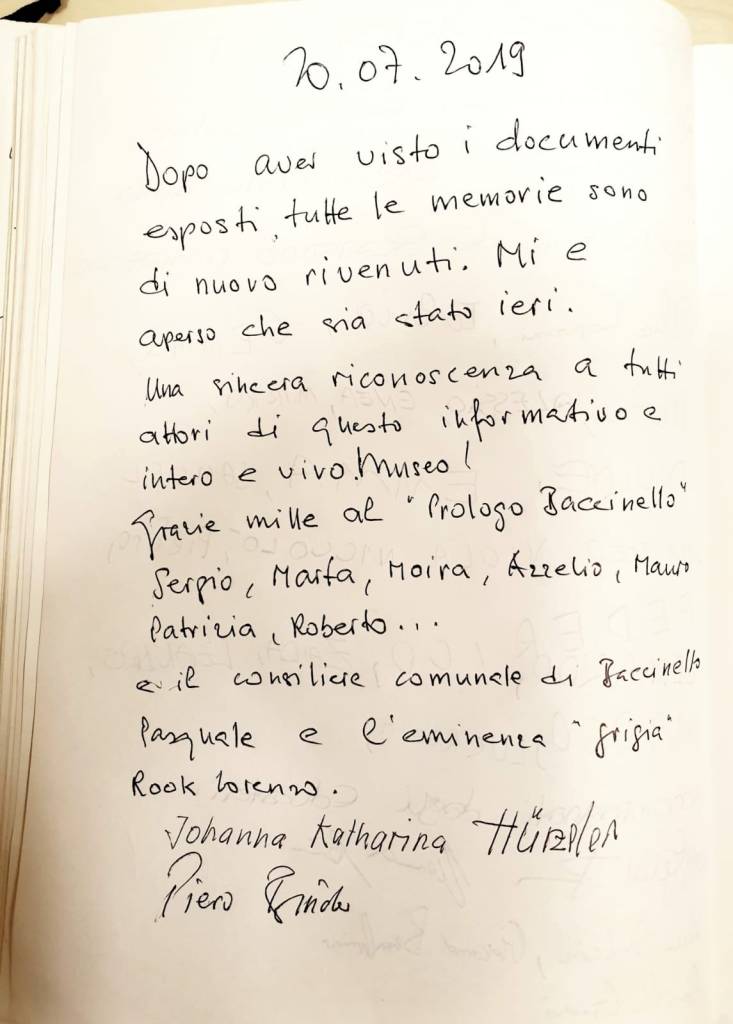 20.07.2019
Dopo aver visto i documenti
esposti, tutte le memorie sono
di nuovo rivenuti. Mi e
aperso che sia stato ieri.
Una sincera riconoscenza a tutti
attori di questo informativo e
intero e vivo Museo!
Grazie mille al "Prologo Baccinello"
Sergio, Marta, Moira, Azzelio, Mauro
Patrizia, Roberto...
e il consiliere comunale di Baccinello
Pasquale e l'eminenza "grigia"
Rook Lorenzo.
Johanna Katharina Hürzeler
Piero